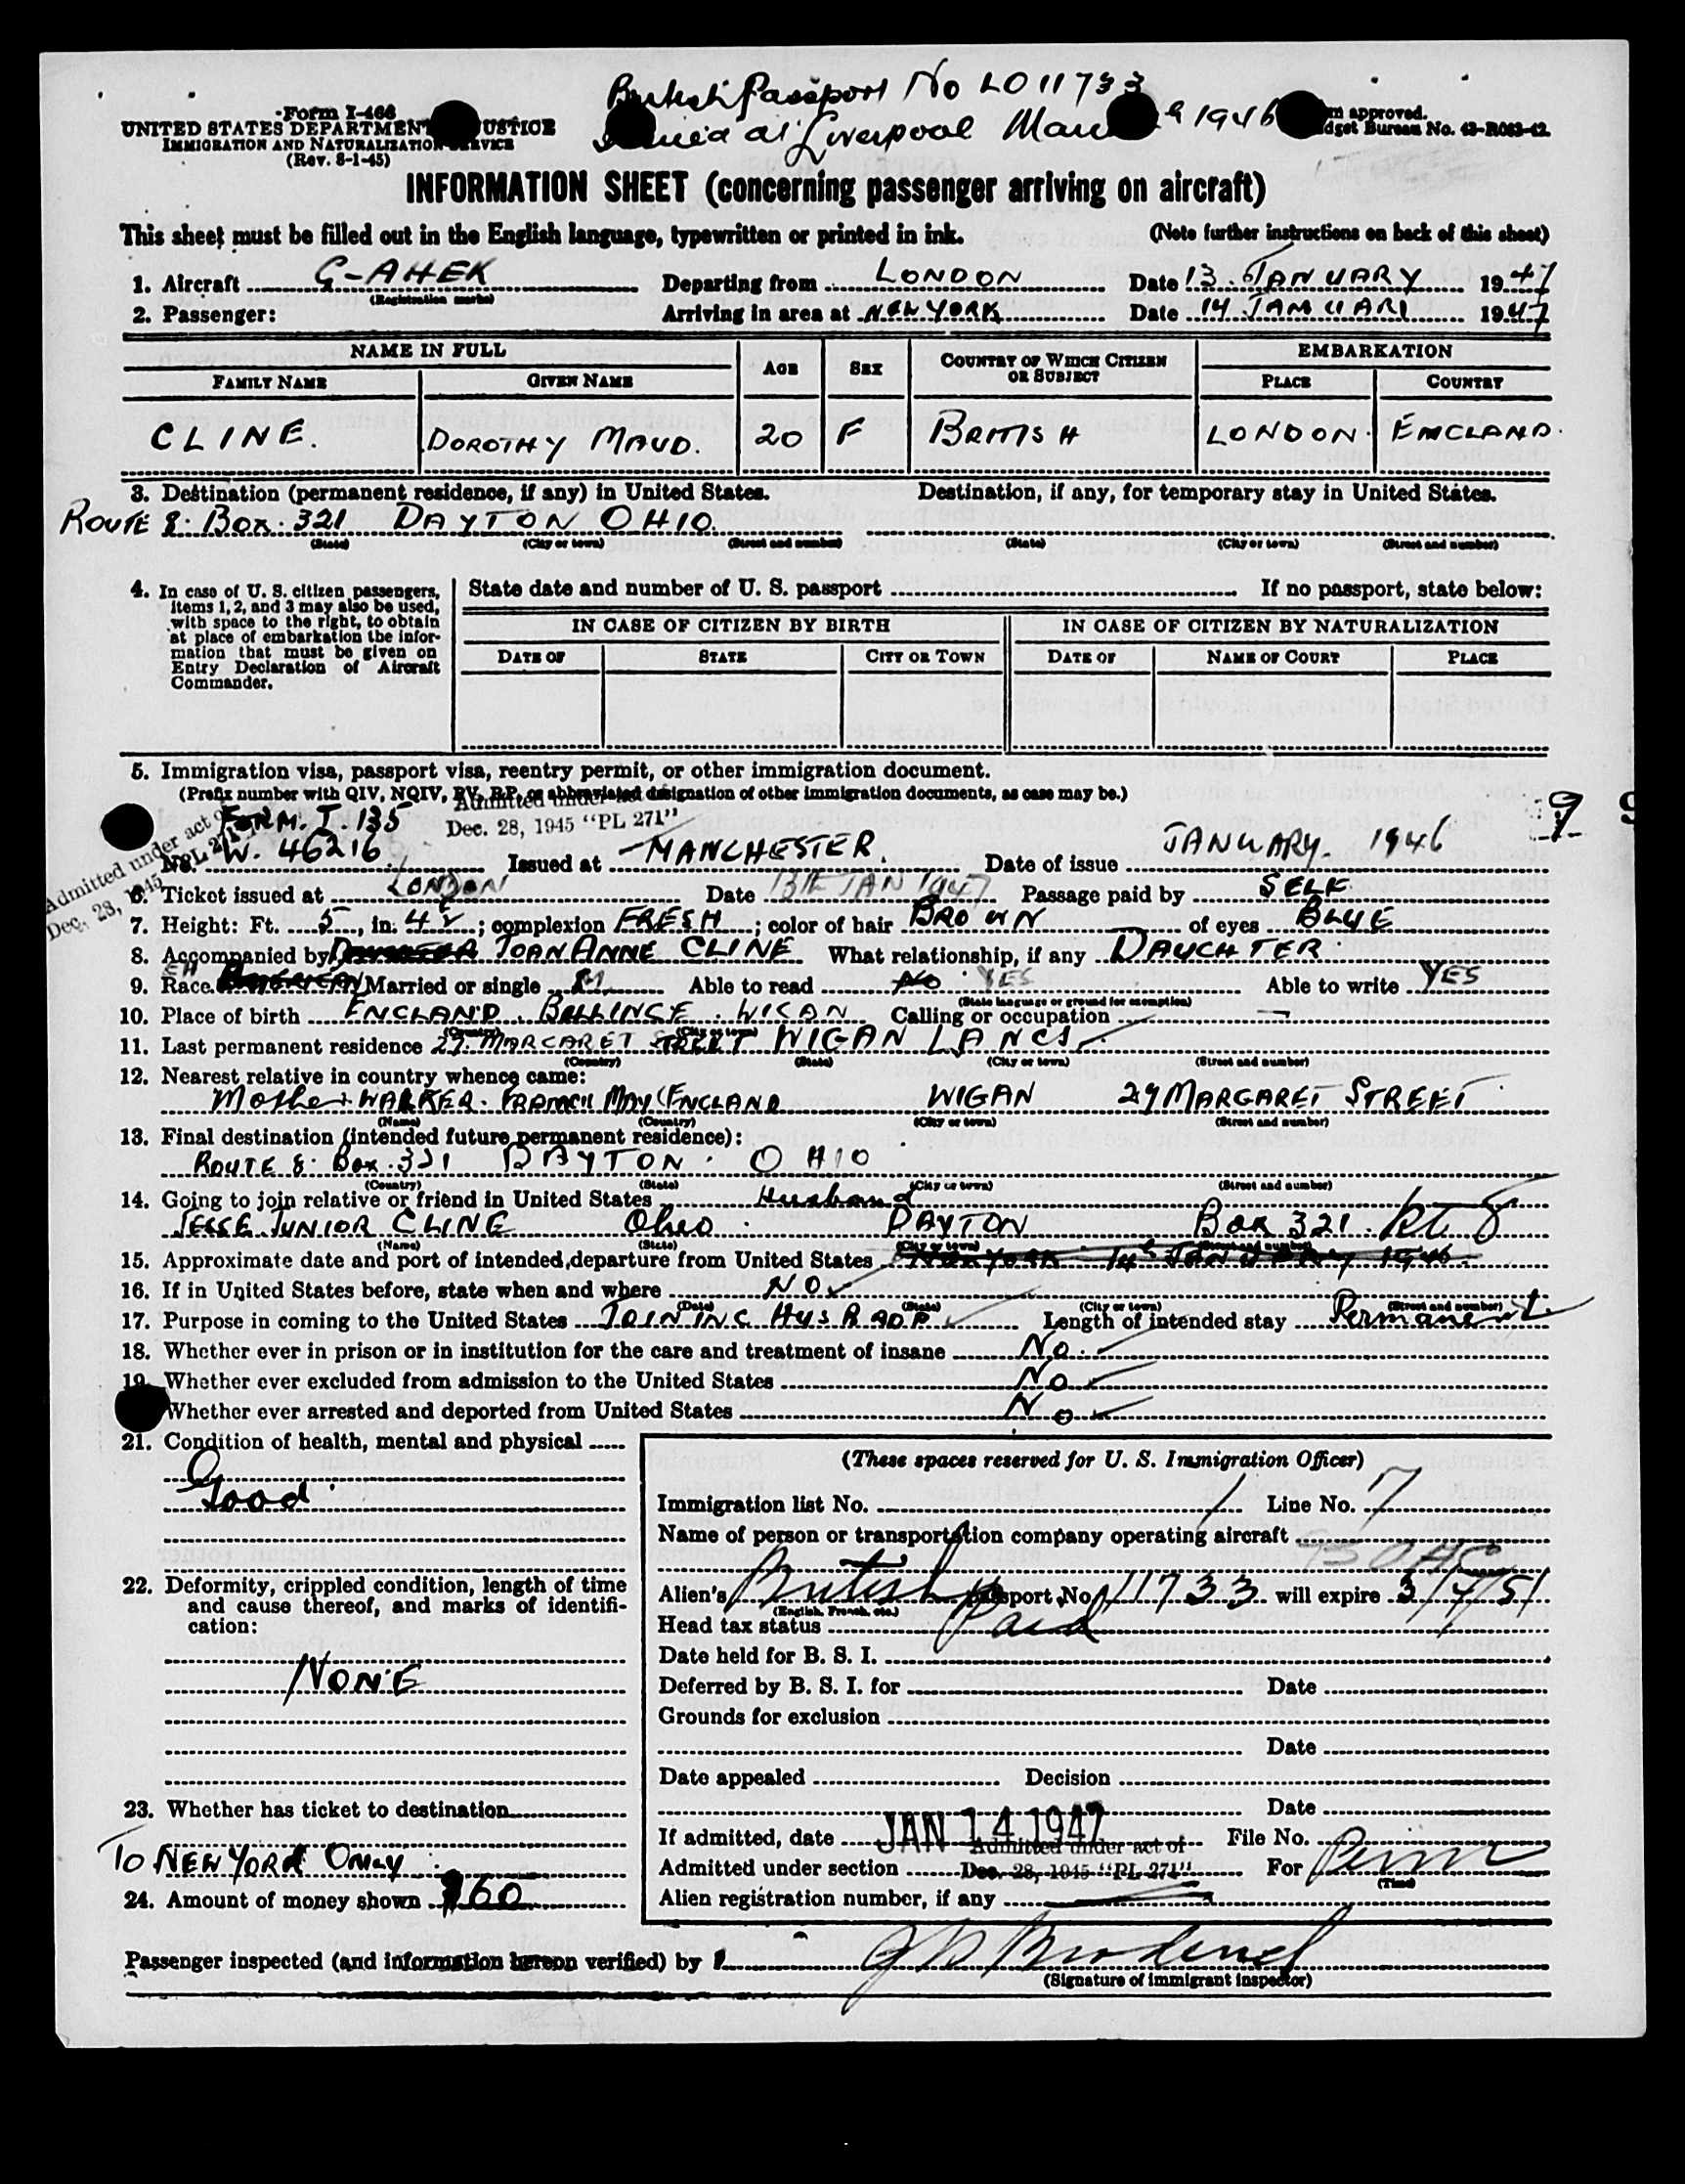 British Passport No L011733
Issued at Liverpool 1946
Form I-466
UNITED STATES DEPARTMENT JUSTICE
IMMIGRATION AND NATURALIZATION SERVICE
(Rev. 8-1-45)
approved.
Budget Bureau No. 43-R063-42.
INFORMATION SHEET (concerning passenger arriving on aircraft)
This sheet must be filled out in the English language, typewritten or printed in ink. (Note further instructions on back of this sheet)
1. Aircraft G-AHEK Departing from LONDON Date 13. JANUARY 1947
(Registration marks)
2. Passenger: Arriving in area at NEW YORK Date 14 JANUARY 1947
NAME IN FULL AGE SEX COUNTRY OF WHICH CITIZEN OR SUBJECT EMBARKATION
FAMILY NAME GIVEN NAME PLACE COUNTRY
CLINE. DOROTHY MAUD. 20 F BRITISH LONDON. ENGLAND.
3. Destination (permanent residence, if any) in United States. Destination, if any, for temporary stay in United States.
ROUTE 8. BOX. 321 DAYTON OHIO.
(State) (City or town) (Street and number) (State) (City or town) (Street and number)
4. In case of U. S. citizen passengers, items 1, 2, and 3 may also be used, with space to the right, to obtain at place of embarkation the information that must be given on Entry Declaration of Aircraft Commander.
State date and number of U. S. passport If no passport, state below:
IN CASE OF CITIZEN BY BIRTH IN CASE OF CITIZEN BY NATURALIZATION
DATE OF STATE CITY OR TOWN DATE OF NAME OF COURT PLACE
5. Immigration visa, passport visa, reentry permit, or other immigration document.
(Prefix number with QIV, NQIV, PV, RP, or abbreviated designation of other immigration documents, as case may be.)
Admitted under act of
Dec. 28, 1945 "PL 271"
Admitted under act of
Dec. 28, 1945 "PL 271"
FORM. I. 135
9
No. W. 46216 Issued at MANCHESTER. Date of issue JANUARY. 1946
6. Ticket issued at LONDON Date 13th JAN 1947 Passage paid by SELF
7. Height: Ft. 5, in. 4½; complexion FRESH; color of hair BROWN of eyes BLUE
8. Accompanied by JOAN ANNE CLINE What relationship, if any DAUGHTER.
9. Race EH Married or single M Able to read YES Able to write YES
(State language or ground for exemption)
10. Place of birth ENGLAND. BILLINGE. WIGAN Calling or occupation —
(Country) (City or town)
11. Last permanent residence 29. MARGARET STREET WIGAN LANCS
(Country) (State) (City or town) (Street and number)
12. Nearest relative in country whence came:
Mother WALKER. MAY ENGLAND WIGAN 29 MARGARET STREET
(Name) (Country) (City or town) (Street and number)
13. Final destination (intended future permanent residence):
ROUTE 8. Box. 321 DAYTON. OHIO
(Country) (State) (City or town) (Street and number)
14. Going to join relative or friend in United States Husband
JESSE JUNIOR CLINE Ohio. DAYTON Box 321. Rt 8
(Name) (State) (City or town) (Street and number)
15. Approximate date and port of intended departure from United States NEW YORK 14th JANUARY 1946.
16. If in United States before, state when and where NO
(Date) (State) (City or town) (Street and number)
17. Purpose in coming to the United States JOINING HUSBAND Length of intended stay Permanent.
18. Whether ever in prison or in institution for the care and treatment of insane No.
19. Whether ever excluded from admission to the United States No
Whether ever arrested and deported from United States No
21. Condition of health, mental and physical
Good.
22. Deformity, crippled condition, length of time and cause thereof, and marks of identification:
NONE
23. Whether has ticket to destination
TO NEW YORK ONLY
24. Amount of money shown $60
(These spaces reserved for U. S. Immigration Officer)
Immigration list No. 1 Line No. 7
Name of person or transportation company operating aircraft
BOAC
Alien's British passport No. 11733 will expire 3/4/51
(English, French, etc.)
Head tax status Paid
Date held for B. S. I.
Deferred by B. S. I. for Date
Grounds for exclusion
Date
Date appealed Decision
Date
If admitted, date JAN 14 1947 File No.
Admitted under act of
Admitted under section Dec. 28, 1945 "PL 271" For Perm
(Time)
Alien registration number, if any
Passenger inspected (and information hereon verified) by
(Signature of immigrant inspector)